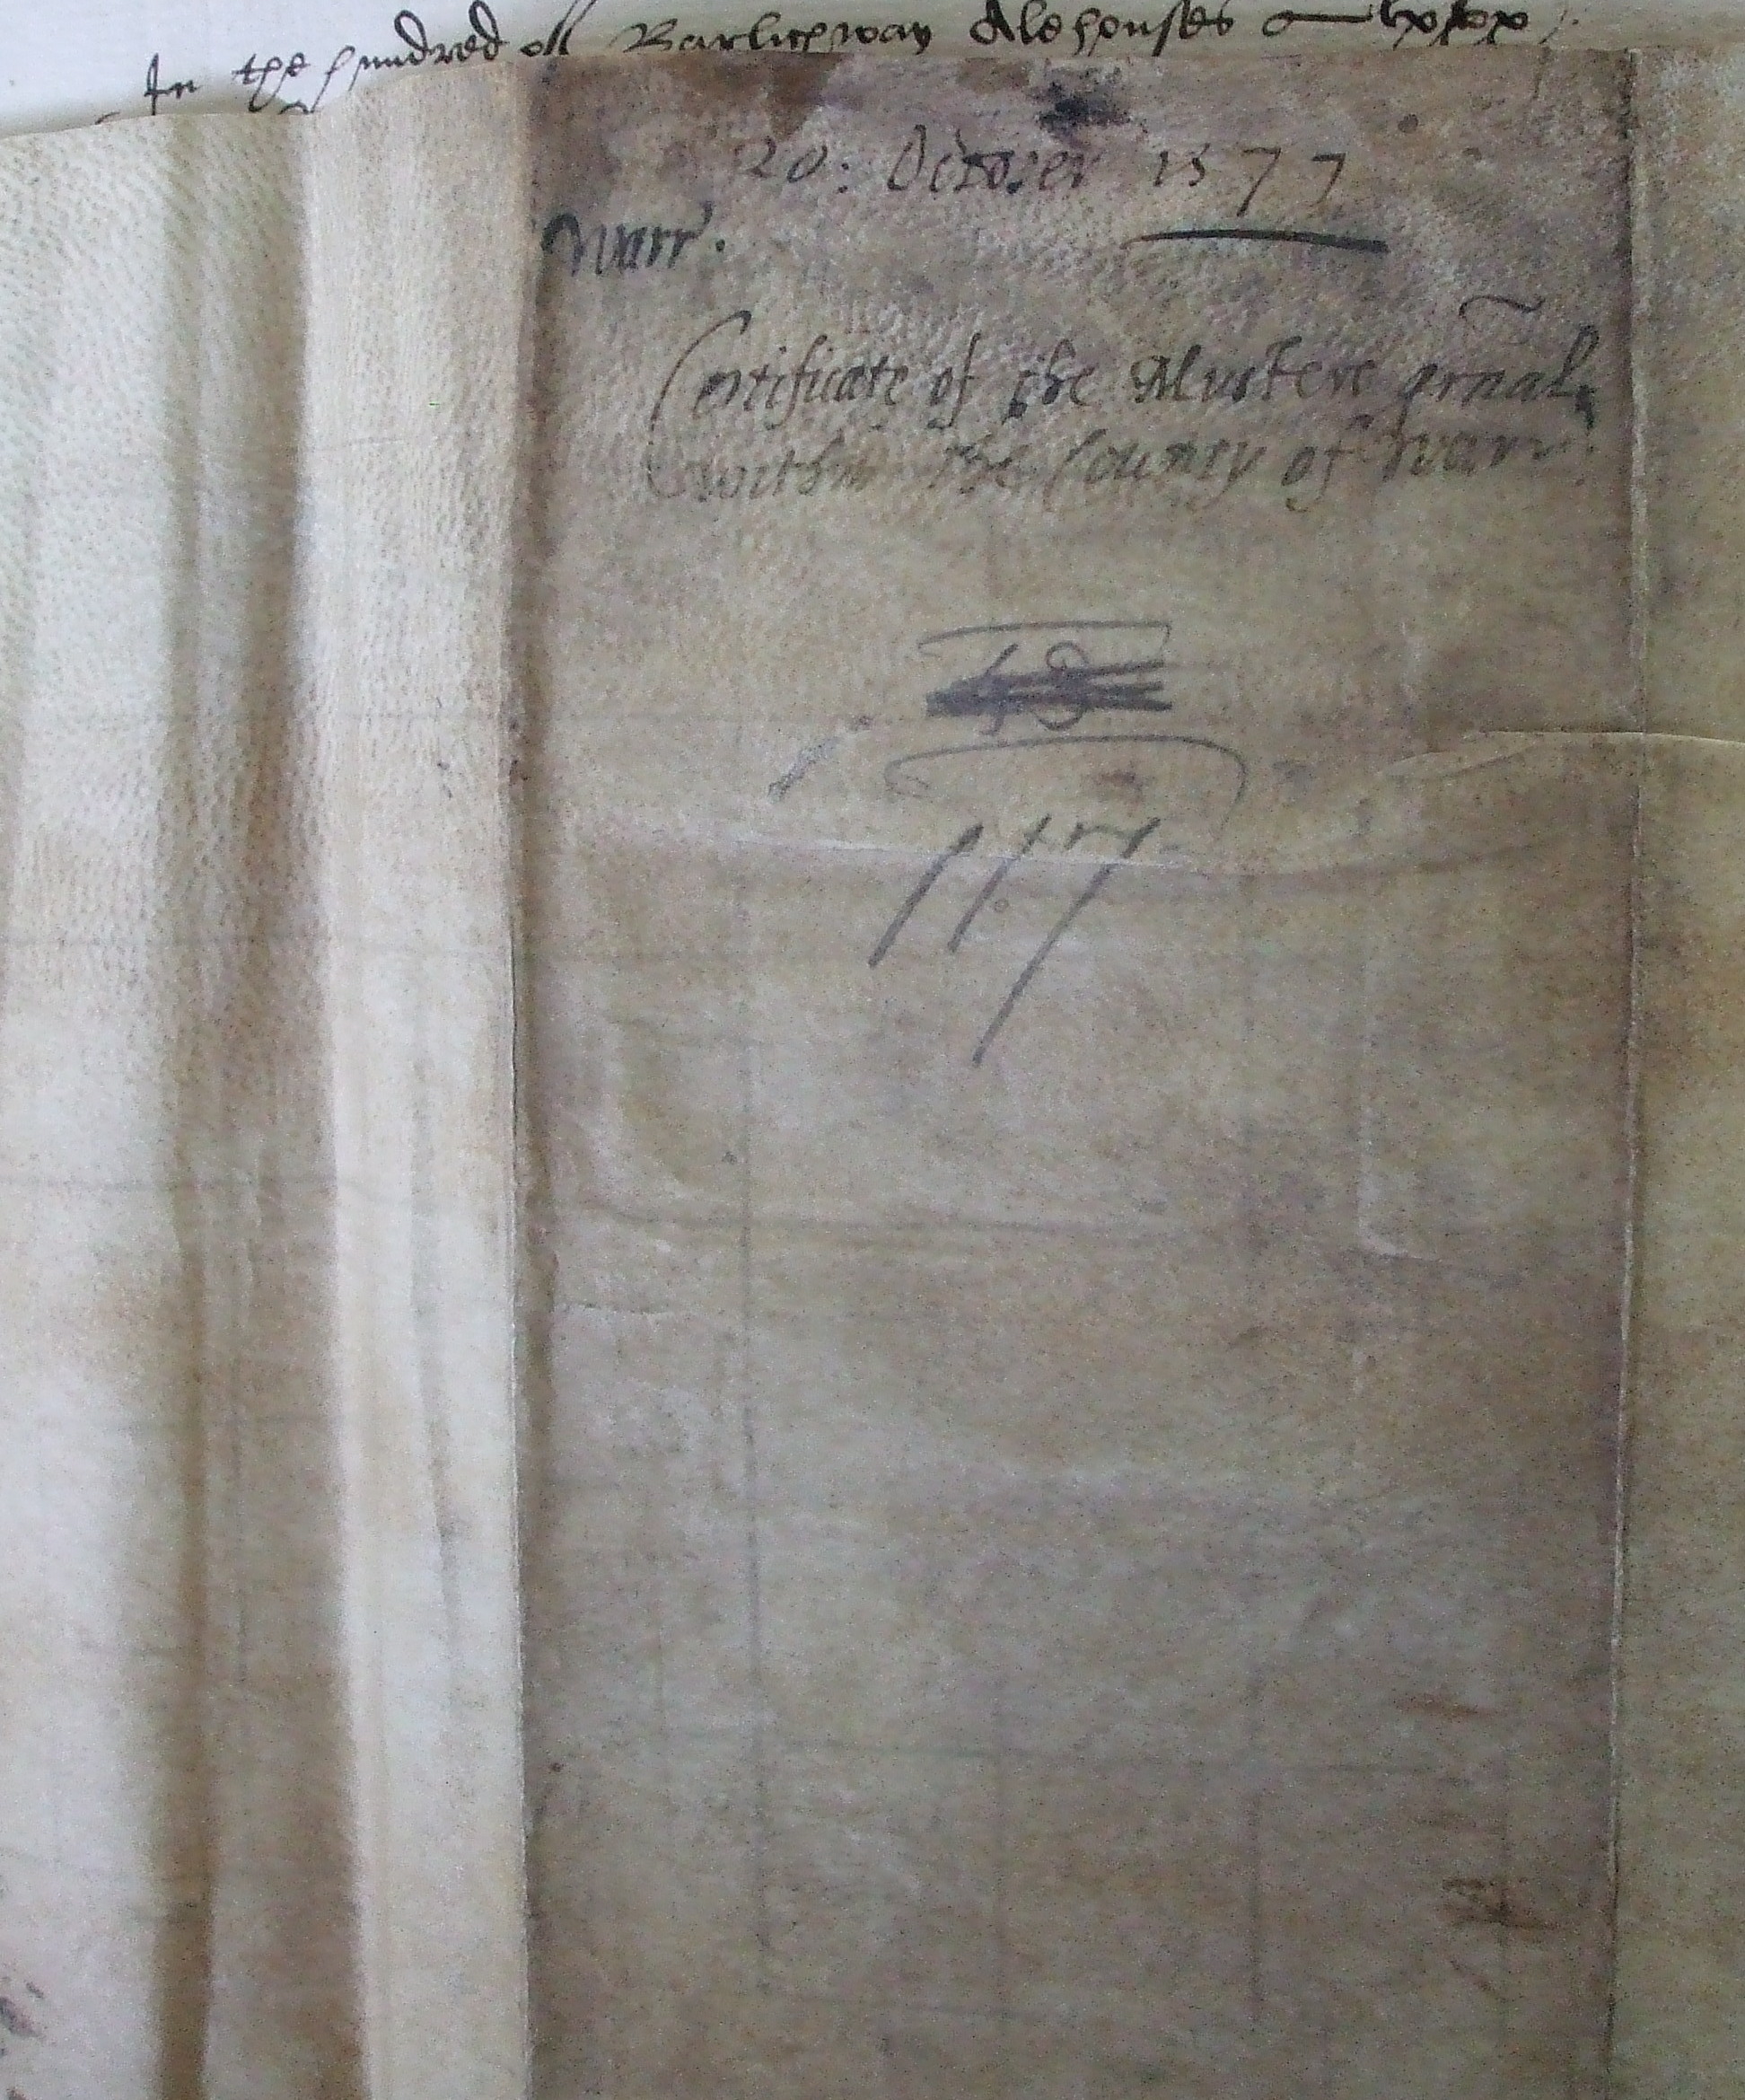 In the hundred off Barlichway Alehouses lxxx
20: October 1577
Warr.
Certificate of the Musters grnall
within the County of Warr.
117